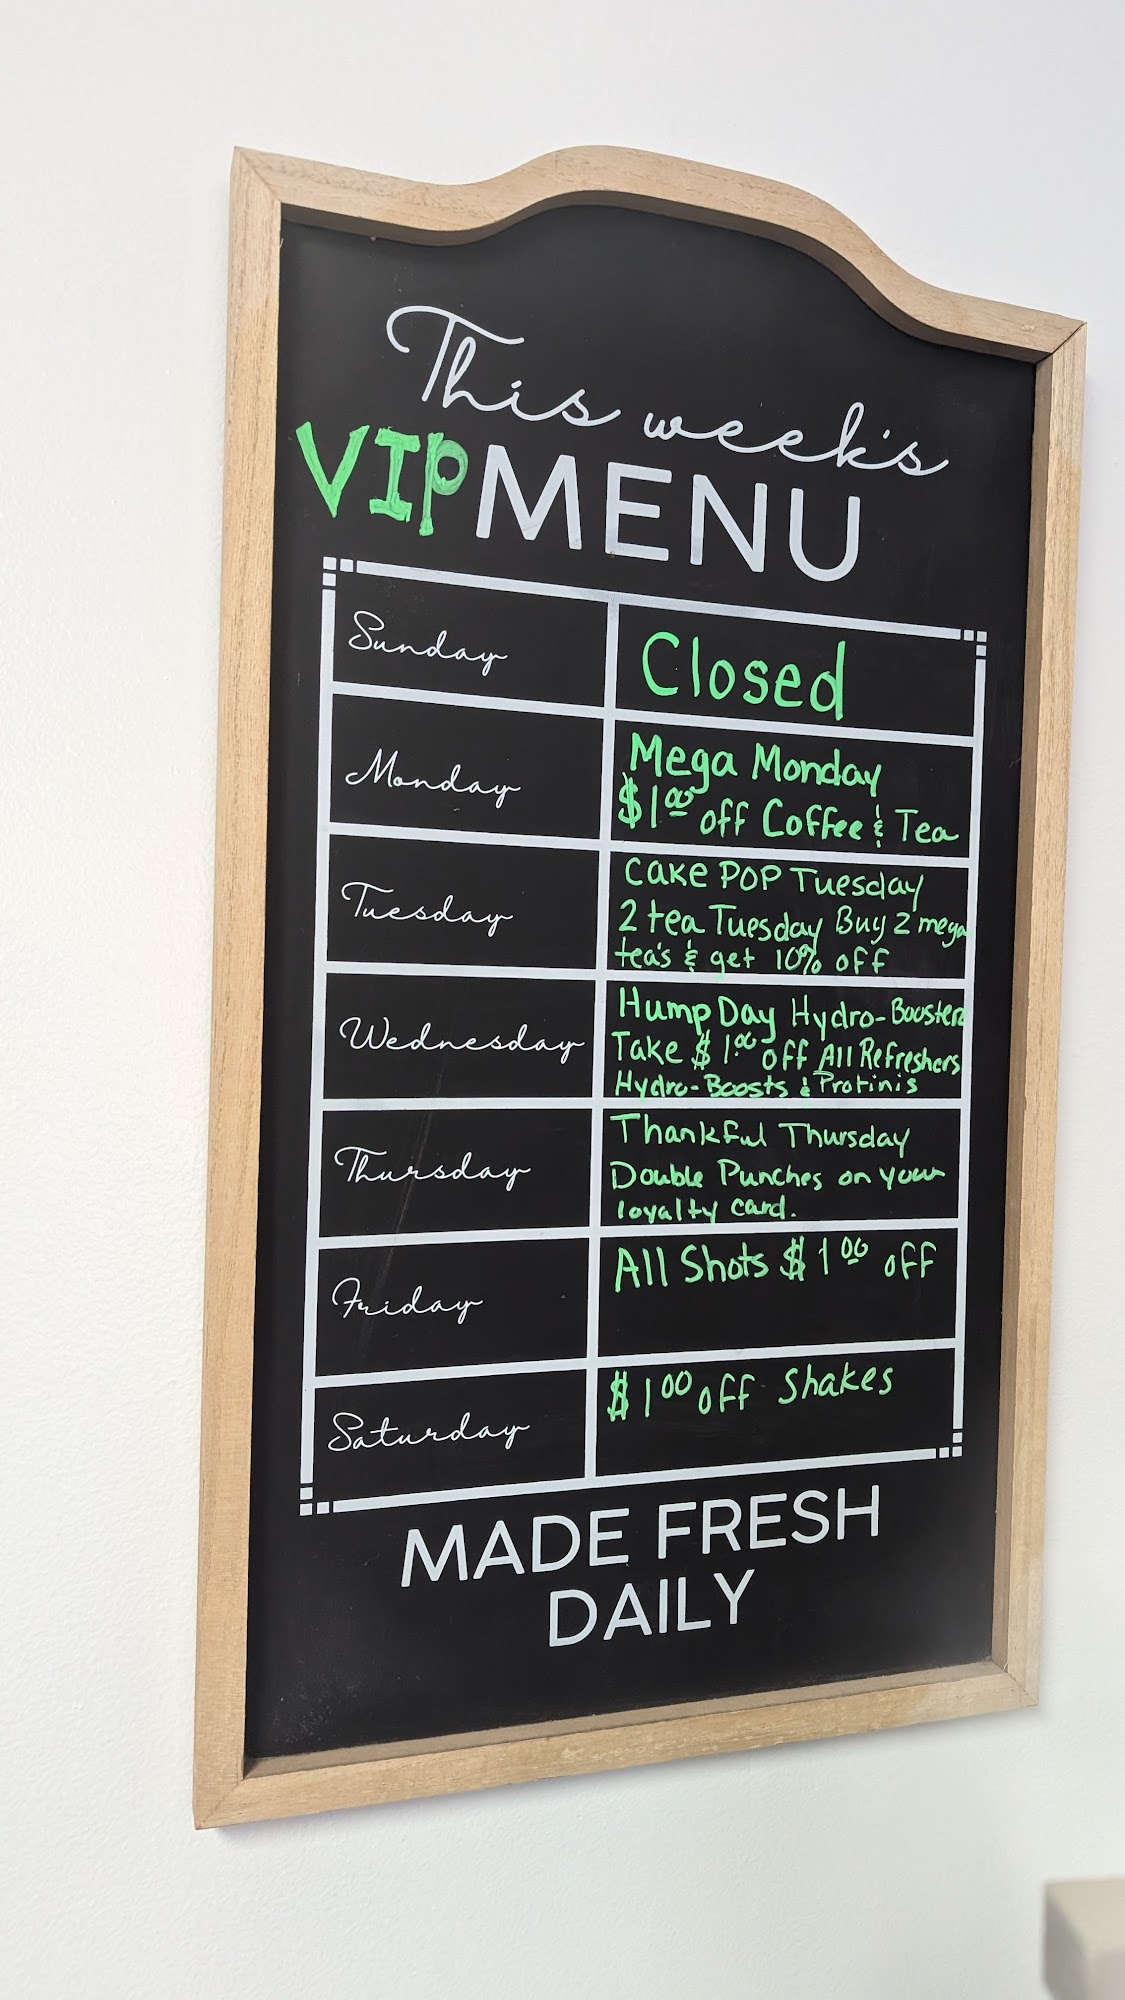 This week's
VIP MENU
Sunday
Closed
Monday
Mega Monday
$1.00 off Coffee & Tea
Tuesday
Cake POP Tuesday
2 tea Tuesday Buy 2 mega
tea's & get 10% off
Wednesday
Hump Day Hydro-Boosters
Take $1.00 off All Refreshers
Hydro-Boosts & Protinis
Thursday
Thankful Thursday
Double Punches on your
loyalty card.
Friday
All Shots $1.00 off
Saturday
$1.00 off Shakes
MADE FRESH
DAILY